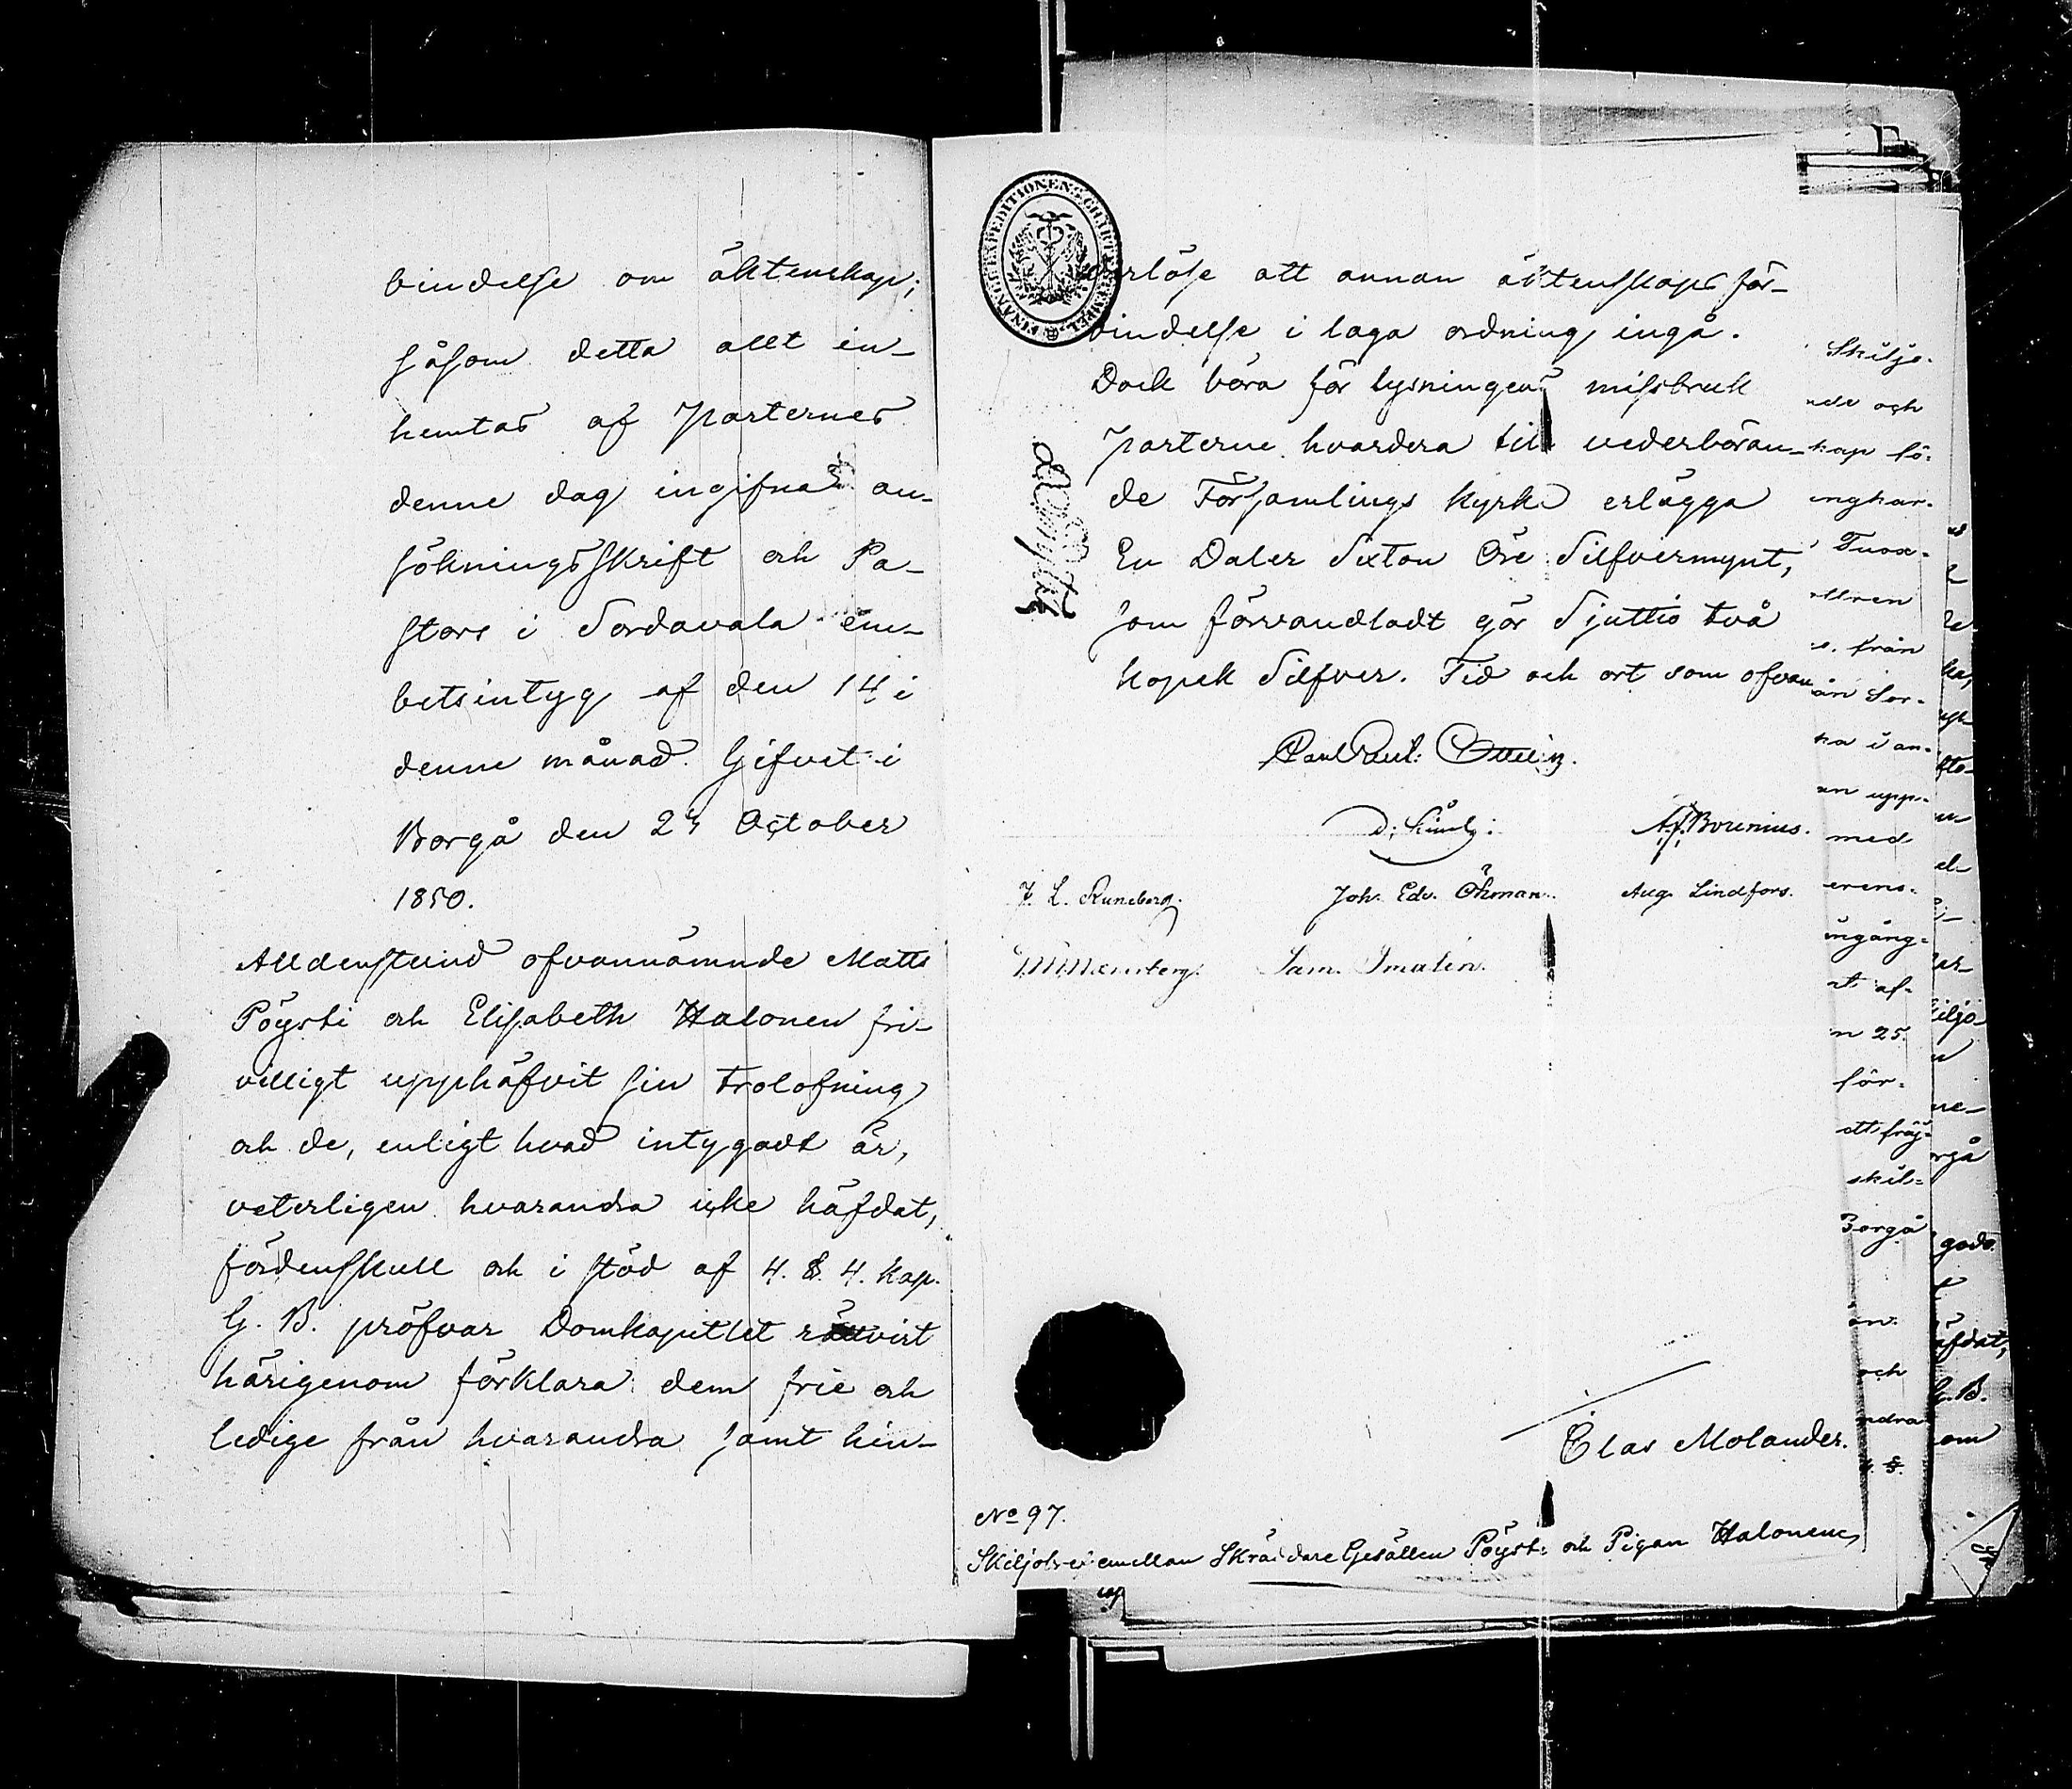 bindelse om äktenskap;
såsom detta allt in-
hemtas af Parternes
denne dag ingifna an-
sökningsskrift och Pa-
stors i Sordavala em-
betsintyg af den 14 i
denne månad. Gifvet i
Borgå den 23 October
1850.
Alldenstund ofvannämnde Matts
Pöysti och Elisabeth Halonen fri-
villigt upphäfvit sin trolofning
och de, enligt hvad intygadt är,
veterligen hvarandra icke häfdat,
fördenskull och i stöd af 4. §. 4. Kap.
G. B. pröfvar Domkapitlet rättvist
härigenom förklara dem frie och
ledige från hvarandra samt hin-
FINANCE EXPEDITIONENS CHARTÆ STEMPEL
derlöse att annan äktenskaps för-
bindelse i laga ordning ingå.
Dock böra för lysningens missbruk
Parterne hvardera till vederböran-
de Församlings Kyrka erlägga
En Daler Sexton Öre Silfvermynt,
som förvandladt gör Sjuttio två
kopek Silfver. Tid och ort som ofvan
J. L. Runeberg.
Joh. Edv. Öhman.
Aug. Lindfors.
Clas Molander.
No 97.
Skiljobref emellan Skräddare Gesällen Pöysti och Pigan Halonen
Skiljo-
nde och
kap fö-
från
än Sor-
ka i an-
an upp-
med
erens-
ingång-
at af
n 25.
för-
skil-
Borgå
och
ndra
4. §.
iljo
rgå
gadt
äfdat,
G. B.
om